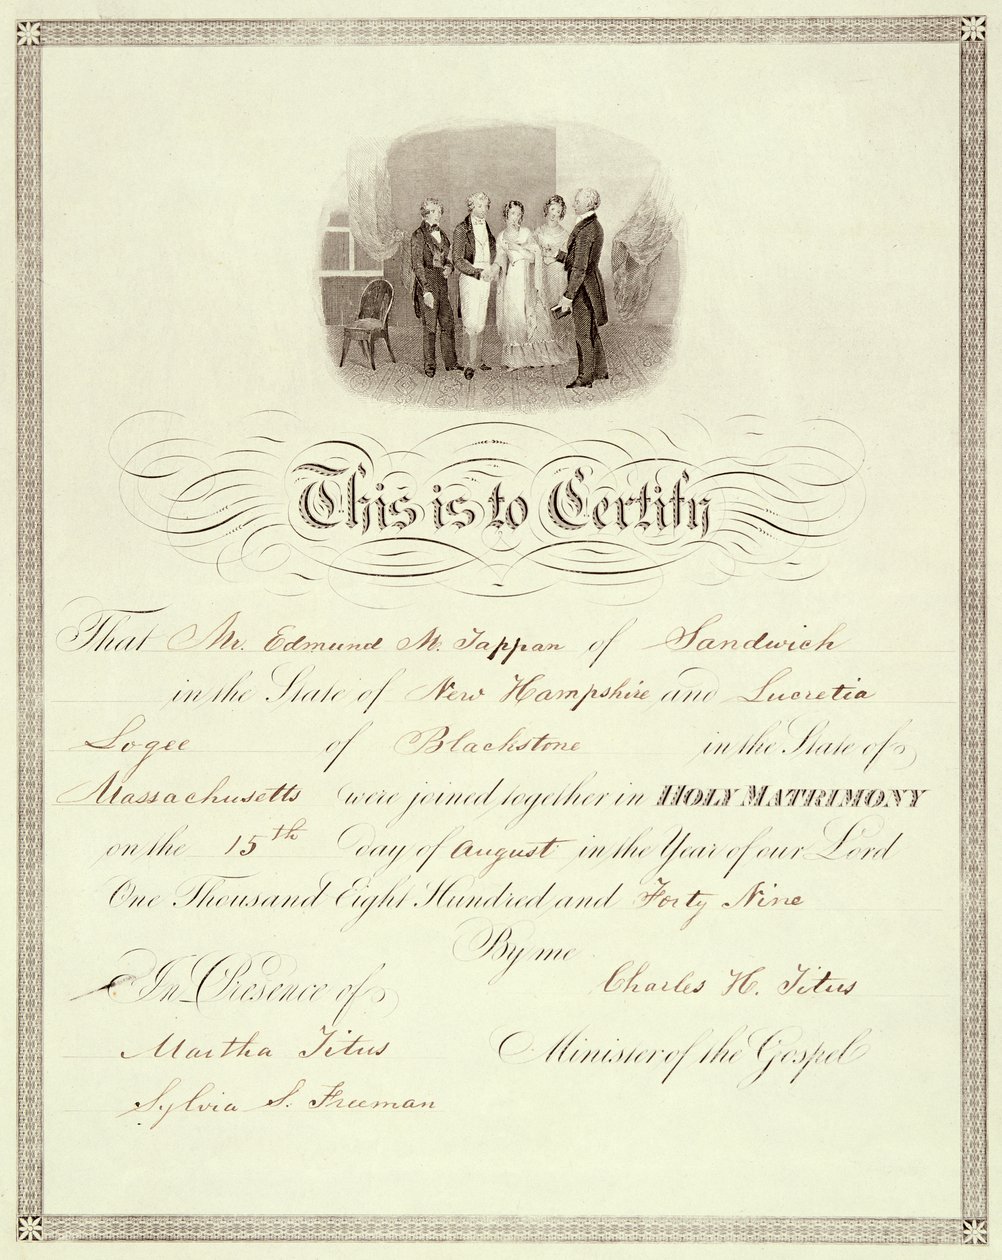 This is to Certify
That Mr. Edmund M. Tappan of Sandwich
in the State of New Hampshire and Lucretia
Logee of Blackstone in the State of
Massachusetts were joined together in HOLY MATRIMONY
on the 15th day of August in the Year of our Lord
One Thousand Eight Hundred and Forty Nine
By me
In Presence of
Charles H. Titus
Martha Titus
Minister of the Gospel
Sylvia S. Freeman